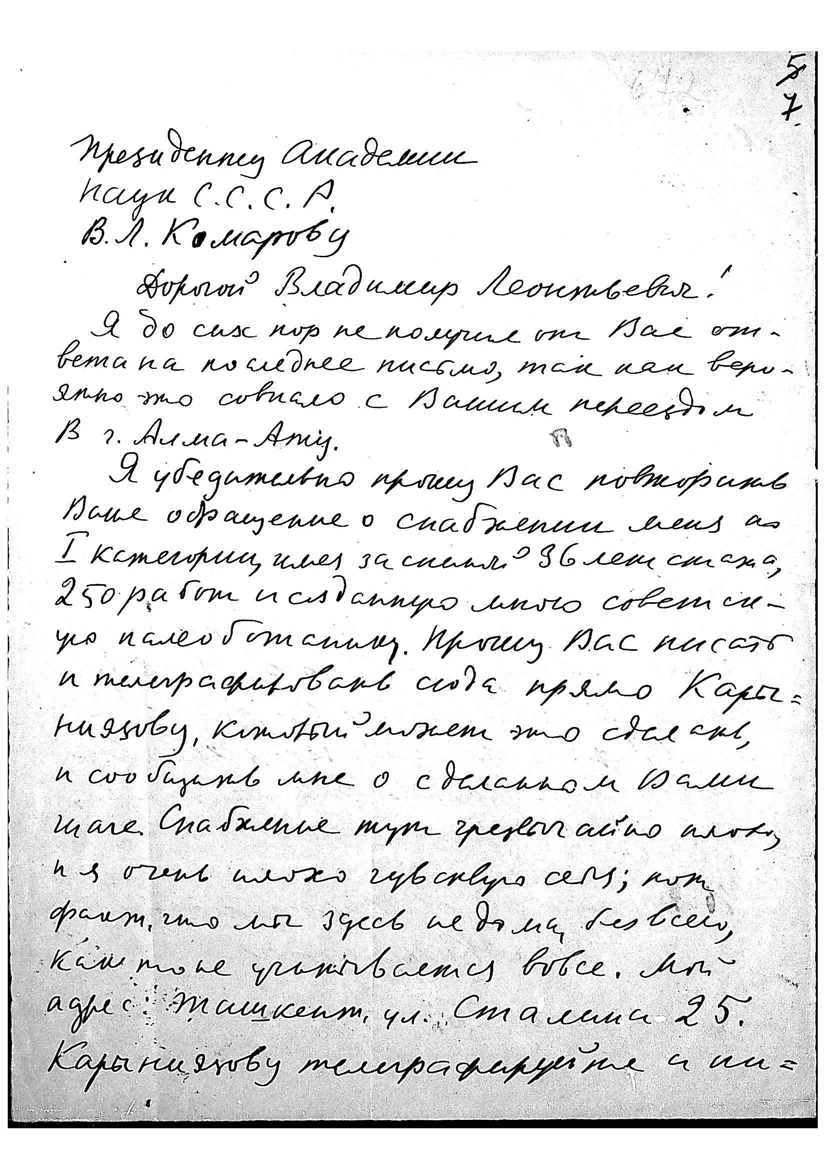 5
7
Президенту Академии
Наук С.С.С.Р.
В.Л. Комарову
Дорогой Владимир Леонтьевич!
Я до сих пор не получил от Вас от-
вета на последнее письмо, так как веро-
ятно это совпало с Вашим переездом
в г. Алма-Ату.
Я убедительно прошу Вас повторить
Ваше обращение о снабжении меня по
I категории, имея за спиной 36 лет стажа,
250 работ и созданную мною советск-
ую палеоботанику. Прошу Вас писать
и телеграфировать сюда прямо Кары=
ниязову, который может это сделать,
и сообщить мне о сделанном Вами
шаге. Снабжение тут чрезвычайно плохо,
и я очень плохо чувствую себя;
факт, что мы здесь не дома, без всего,
как то не учитывается вовсе. Мой
адрес: Ташкент, ул. Сталина 25.
Карыниязову телеграфируйте и пи=